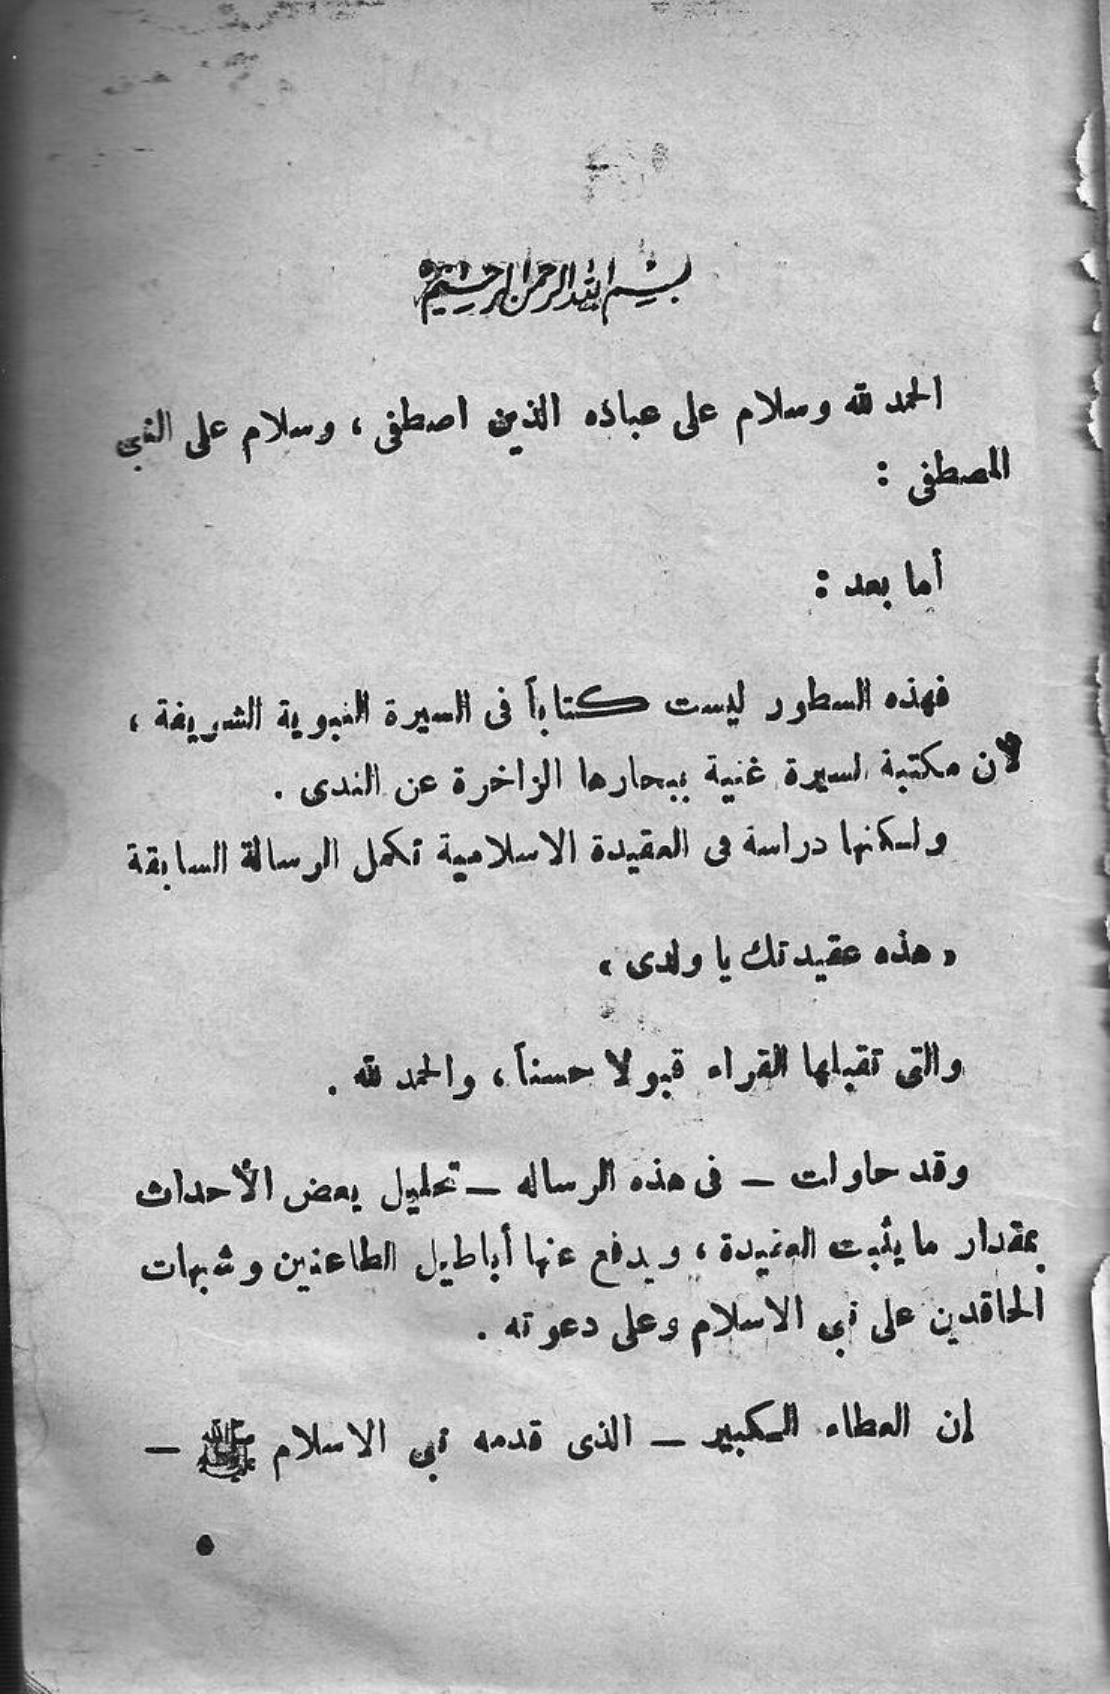 بسم الله الرحمن الرحيم
الحمد لله وسلام على عباده الذين اصطفى ، وسلام على النبى
المصطفى :
أما بعد :
فهذه السطور ليست كتاباً فى السيرة النبوية الشريفة ،
لأن مكتبة السيرة غنية ببحارها الزاخرة عن الندى .
ولكنها دراسة فى العقيدة الاسلامية تكمل الرسالة السابقة
« هذه عقيدتك يا ولدى »
والتى تقبلها القراء قبولا حسناً ، والحمد لله .
وقد حاولت – فى هذه الرساله – تحليل بعض الأحداث
بمقدار ما يثبت العقيدة ، ويدفع عنها أباطيل الطاعنين وشبهات
الحاقدين على نبى الاسلام وعلى دعوته .
إن العطاء الكبير – الذى قدمه نبى الاسلام ﷺ –
٥